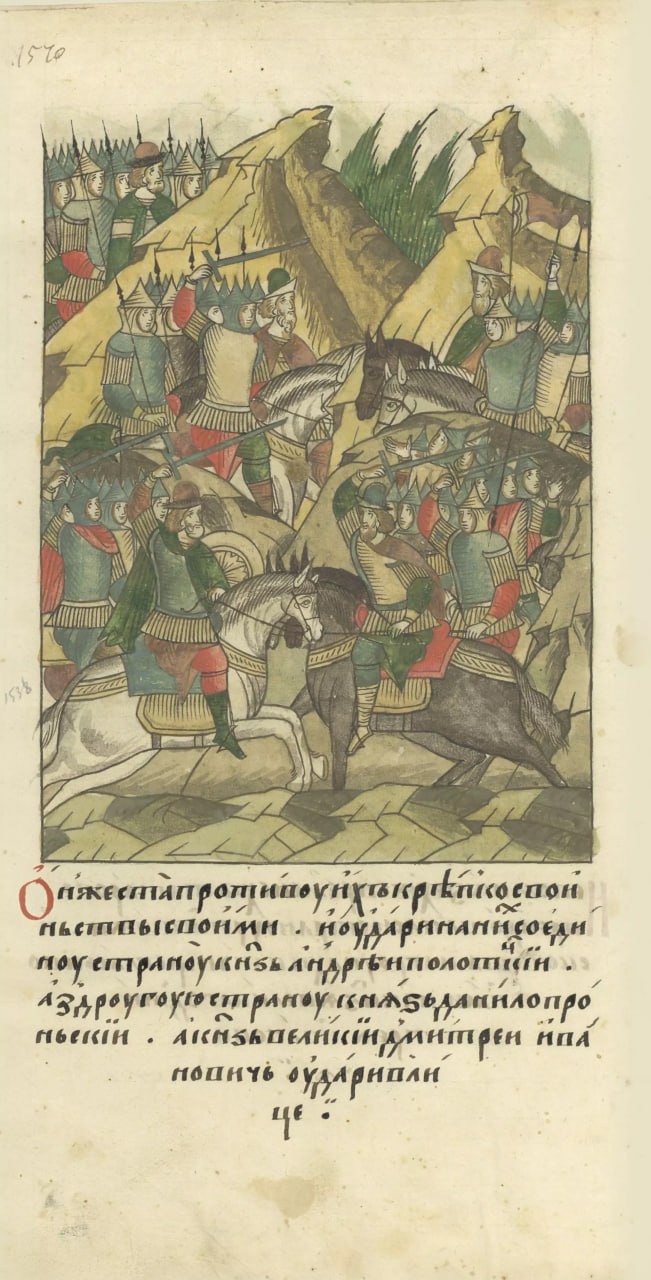 1570
1538
Ониже ста противоу ихъ крѣпко с вои
ньствы своими . и оудари на них со еди
ноу страноу кнзь андрѣи полотцкии .
а з дроугоую страноу князь данило про
ньскии . а кнзь великии дмитреи ива
новичь оудари в ли
це :